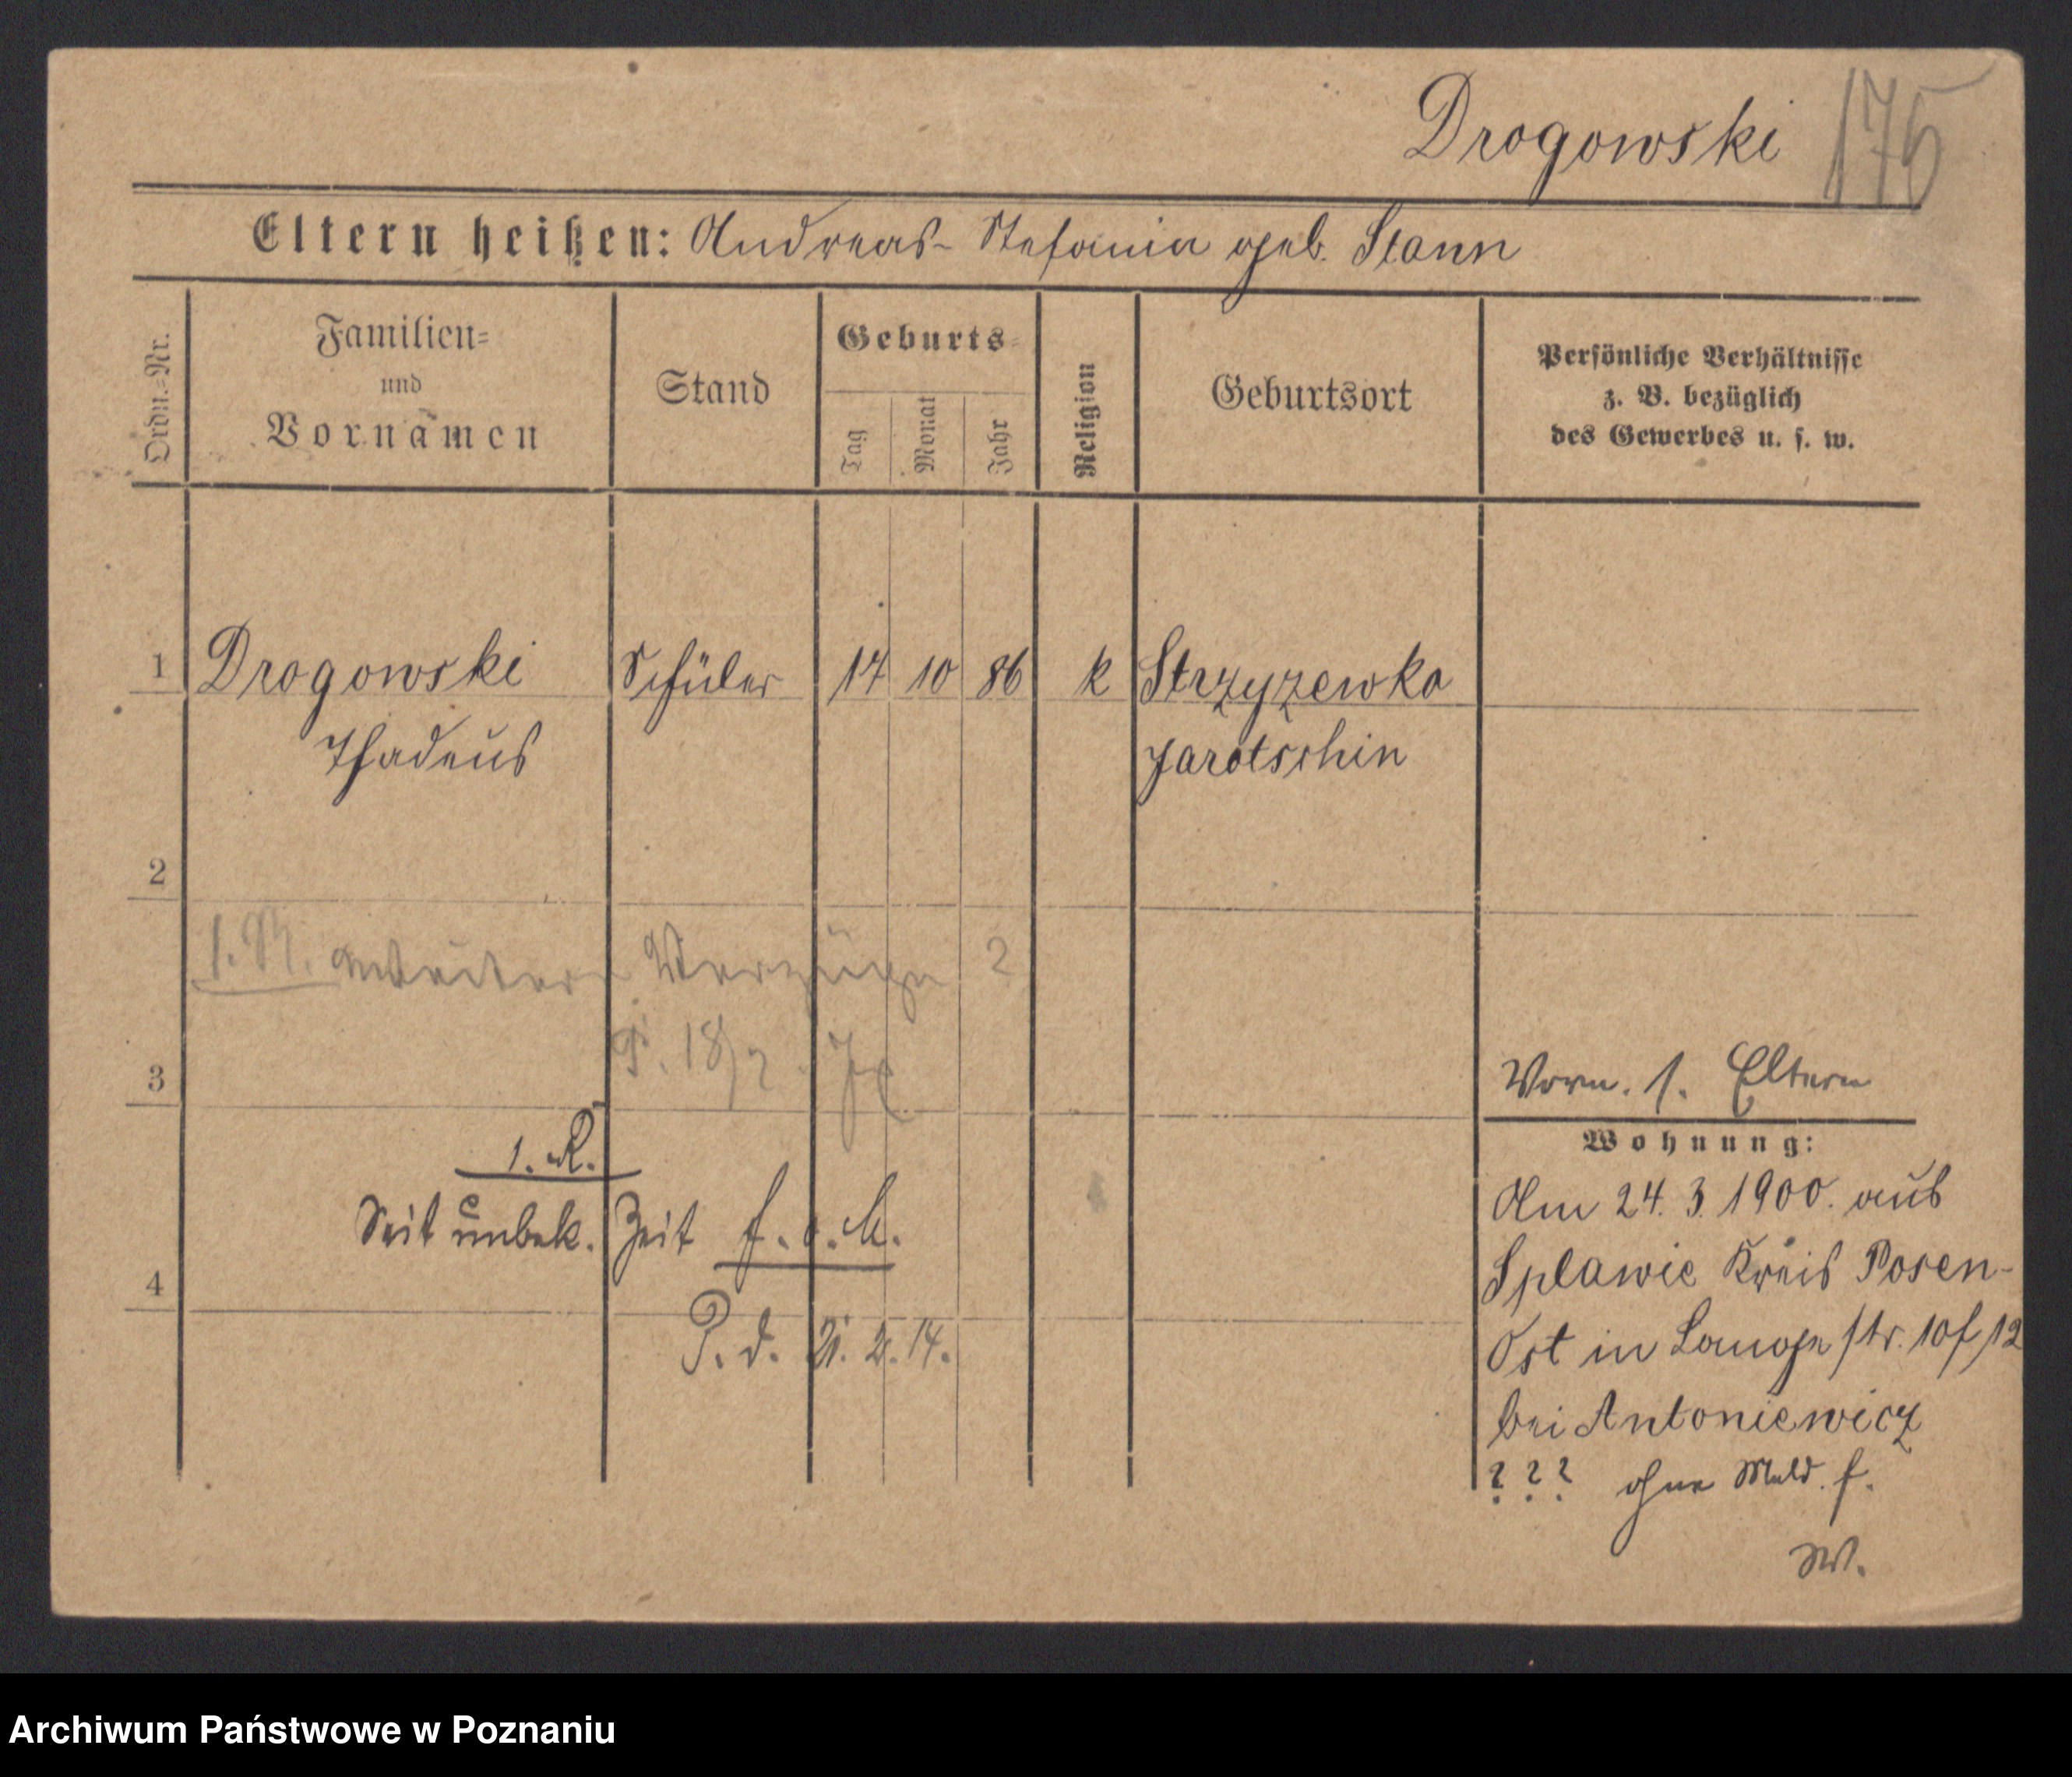 Drogowski 175
Eltern heißen: Andreas - Stefania geb. Stann
Ordn.-Nr.
Familien-
und
Vornamen
Stand
Geburts-
Tag
Monat
Jahr
Religion
Geburtsort
Persönliche Verhältnisse
z. B. bezüglich
des Gewerbes u. s. w.
1 Drogowski Schüler 17 10 86 k Strzyzewko
Thadeus Jarotschin
2
1. R. Verzüge 2
P. 18/2.
3
Vorm. s. Eltern
Wohnung:
1. R.
Seit unbek. Zeit f. o. M.
4
P. d. 21. 2. 14.
Am 24. 3. 1900. aus
Splawie Kreis Posen-
Ost in Lange str. 10f/12
bei Antoniewicz
? ? ? ohne Meld. f.
W.
Archiwum Państwowe w Poznaniu